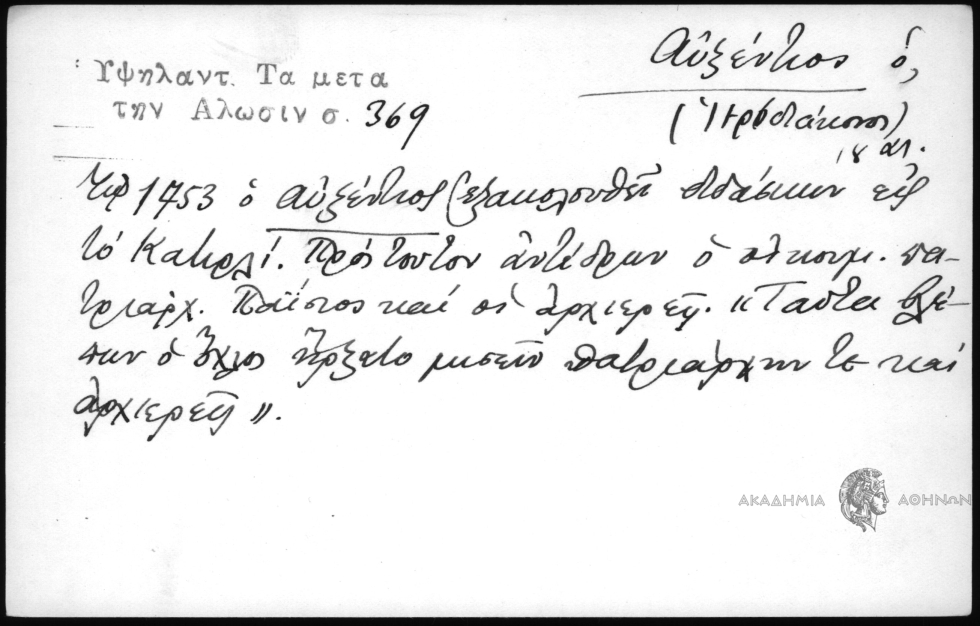 Αὐξέντιος ὁ,
Ὑψηλαντ. Τα μετα
την Αλωσιν σ. 369
(Ἱεροδιάκονος)
18 αι.
Τῷ 1753 ὁ Αὐξέντιος ἐξακολουθεῖ διδάσκων εἰς
τό Κατιρλί. Πρός τοῦτον ἀντέδρων ὁ οἰκουμ. πα-
τριάρχ. Παΐσιος καί οἱ ἀρχιερεῖς. «Ταῦτα βλέ-
πων ὁ ὄχλος ἤρξατο μισεῖν πατριάρχην τε καί
ἀρχιερεῖς».
ΑΚΑΔΗΜΙΑ ΑΘΗΝΩΝ